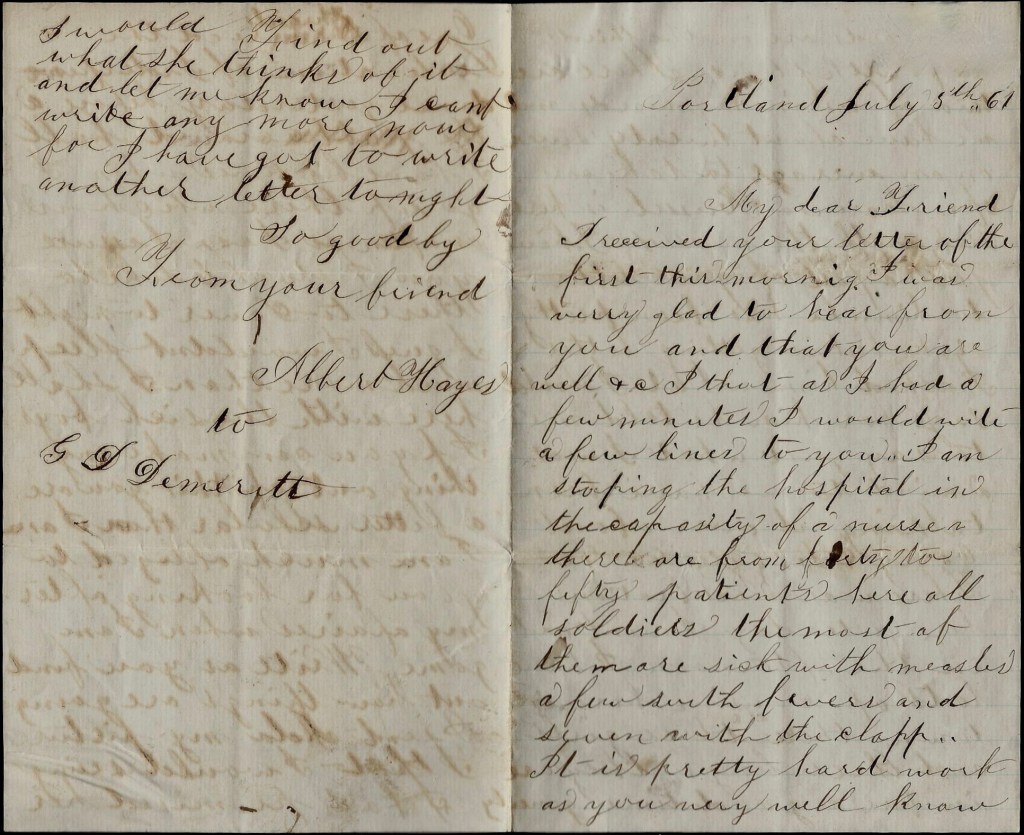 Portland July 5th, 61
My dear Friend
I received your letter of the
first this mornig I was
verry glad to hear from
you and that you are
well & c I thot as I had a
few minutes I would wite
a few lines to you. I am
stoping the hospital in
the capasity of a nurse
there are from forty to
fifty patients here all
soldiers the most of
them are sick with measles
a few with fevers and
seven with the clapp..
It is pretty hard work
as you very well know
I would Find out
what she thinks of it
and let me know I cant
write any more now
for I have got to write
another letter to night
So good by
From your friend
Albert Hayes
to
G D Demeritt